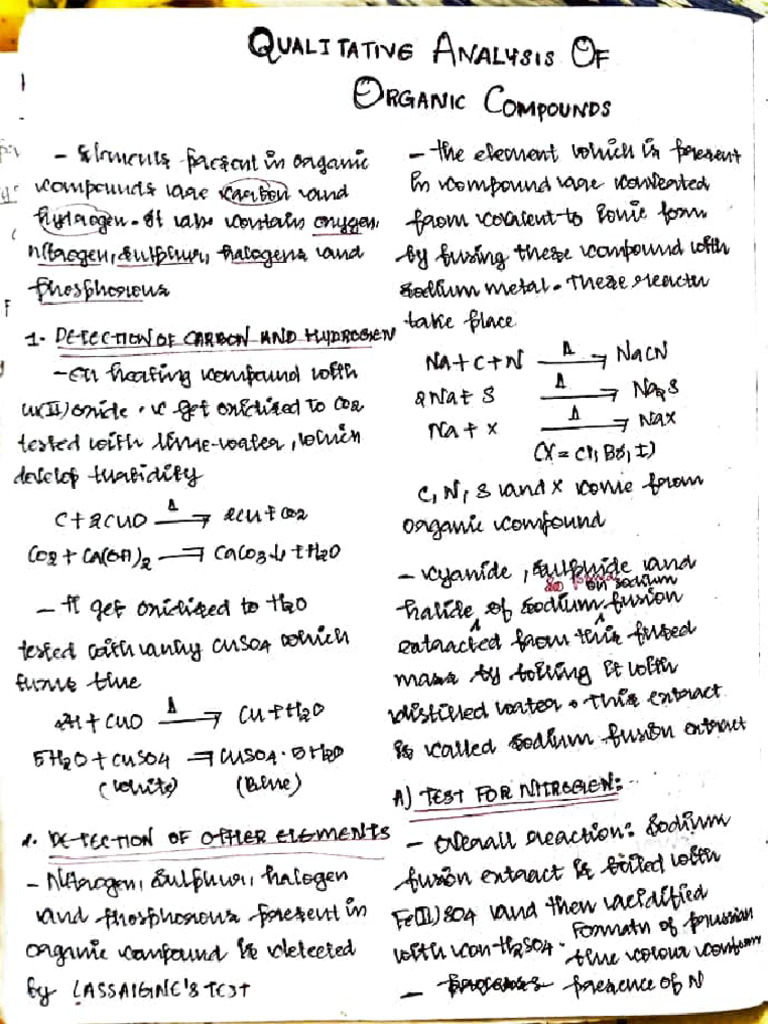 QUALITATIVE ANALYSIS OF
ORGANIC COMPOUNDS
- Elements present in organic
compounds are carbon and
hydrogen. It also contain oxygen,
nitrogen, sulphur, halogens and
phosphorous
1. DETECTION OF CARBON AND HYDROGEN
- On heating compound with
Cu(II) oxide. C get oxidized to CO2
tested with lime-water, which
develop turbidity
C + 2CuO Δ→ 2Cu + CO2
CO2 + Ca(OH)2 → CaCO3↓ + H2O
- H get oxidized to H2O
tested with anhy CuSO4 which
turns blue
2H + CuO Δ→ Cu + H2O
5H2O + CuSO4 → CuSO4·5H2O
(White) (Blue)
2. DETECTION OF OTHER ELEMENTS
- Nitrogen, sulphur, halogen
and phosphorous present in
organic compound is detected
by LASSAIGNE'S TEST
- The element which is present
in compound are converted
from covalent to ionic form
by fusing these compound with
sodium metal. These reactn
take place
Na + C + N Δ→ NaCN
2Na + S Δ→ Na2S
Na + X Δ→ NaX
(X = Cl, Br, I)
C, N, S and X come from
organic compound
- cyanide, sulphide and
so formed on sodium
halide of sodium fusion
extracted from this fused
mass by boiling it with
distilled water. This extract
is called sodium fusion extract
A) TEST FOR NITROGEN:-
- Overall reaction: Sodium
fusion extract is boiled with
Fe(II)SO4 and then acidified
with con-H2SO4. Formatn of prussian
blue colour confirm
- presence of N